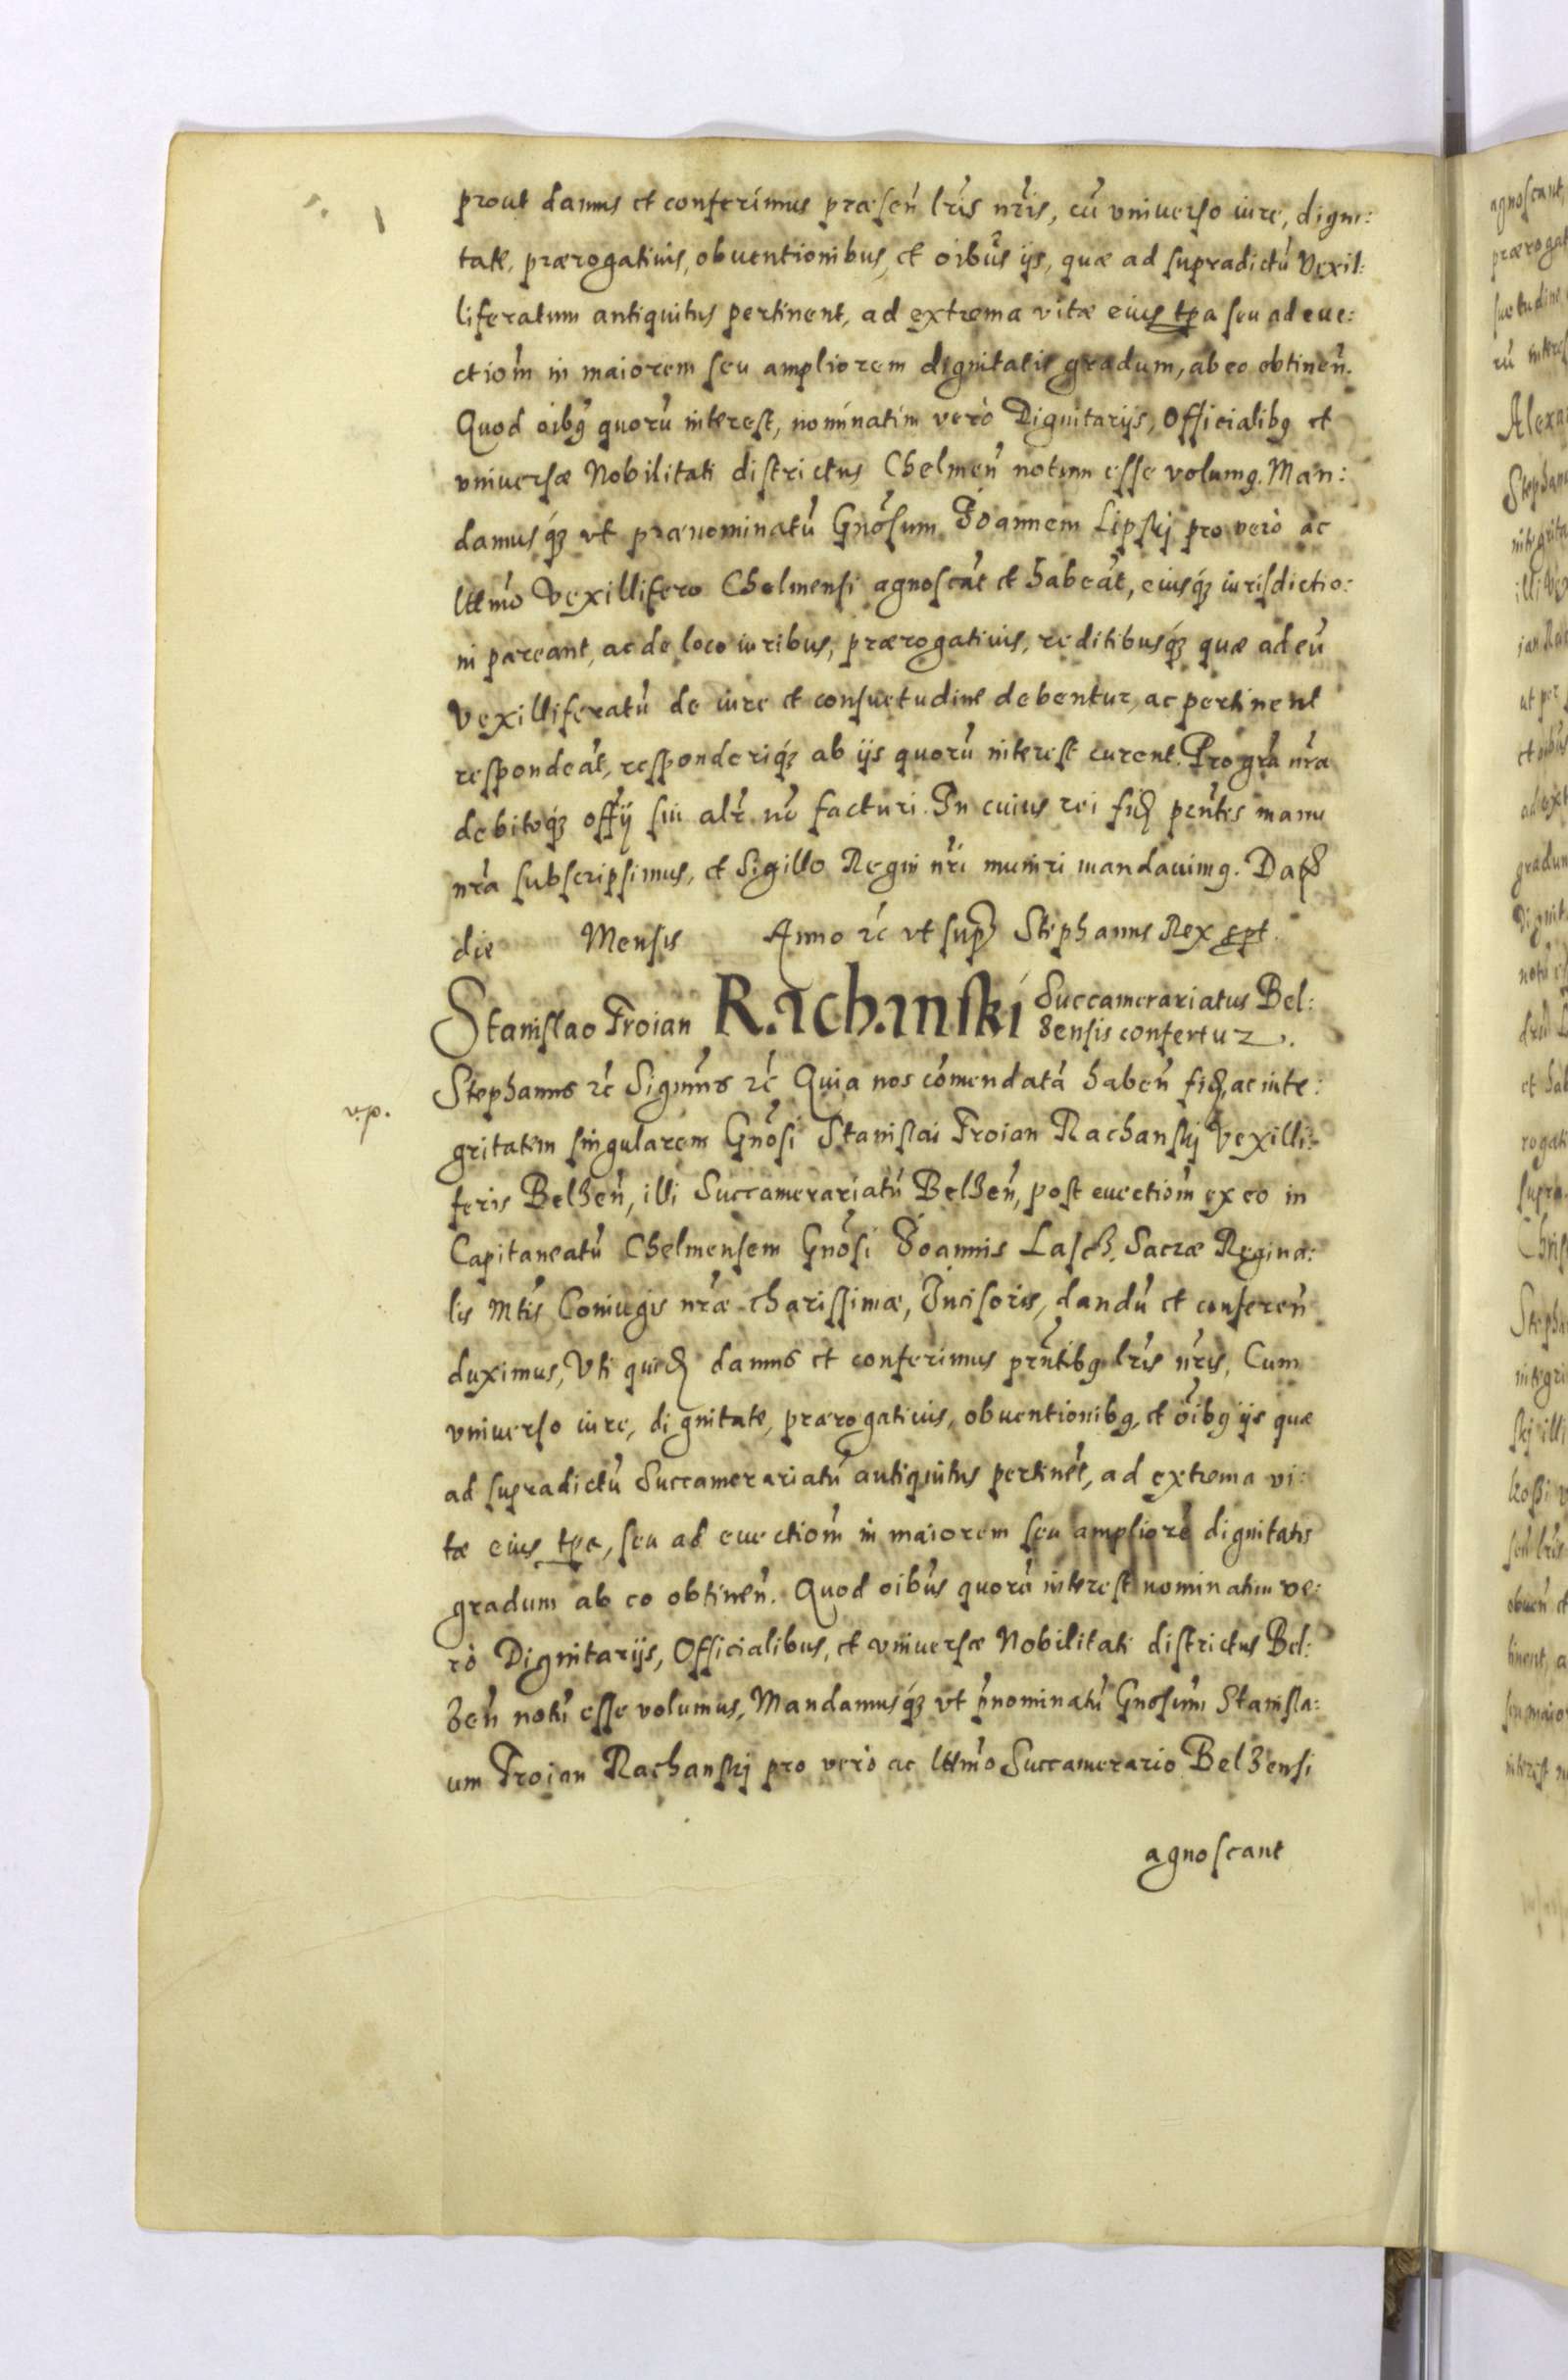 prout damus et conferimus præsen̄ lr̄is nr̄is, cū vniuerso iure, digni:
tate, prærogatiuis, obuentionibus, et oībus ijs, quæ ad supradictū Vexil:
liferatum antiquitus pertinent, ad extrema vitæ eius tp̄a seu ad eue:
ctiōm in maiorem seu ampliorem dignitatis gradum, ab eo obtinen̄.
Quod oībꝯ quorū interest, nominatim verò Dignitarijs, Officialibꝯ et
vniuersæ Nobilitati districtus Chelmen̄ notum esse volumꝯ. Man:
damusqꝫ vt prænominatū Gnōsum Joannem Lipskj pro vero ac
lttmō Vexillifero Chelmensi agnoscāt et habeāt, eiusqꝫ iurisdictio:
ni pareant, ac de loco iuribus, prærogatiuis, reditibusqꝫ quæ ad eū
Vexilliferatū de iure et consuetudine debentur, ac pertinent
respondeāt, responderiqꝫ ab ijs quorū interest curent. Pro gr̄a nr̄a
debitoqꝫ offij sui alr̄ nō facturi. In cuius rei fid̄ pn̄tes manu
nr̄a subscripsimus, et Sigillo Regni nr̄i muniri mandauimꝯ. Dat̄
die Mensis Anno ꝛc̄ vt supr̄ Stephanus Rex sspt.
Stanislao Troian Rachanski Succamerariatus Bel:
zensis confertur.
Stephanus ꝛc̄ Signm̄s ꝛc̄ Quia nos cōmendatā haben̄ fid̄, ac inte:
v.p.
gritatem singularem Gnōsi Stanislai Troian Rachanskj Vexilli:
feris Belzen̄, illi Succamerariatū Belzen̄, post euectiōm ex eo in
Capitaneatū Chelmensem Gnōsi Joannis Lasch, Sacræ Regina:
lis Mtīs Coniugis nr̄æ charissimæ, Incisoris, dandū et conferen̄
duximus, Vti quid̄ damus et conferimus prn̄tibꝯ lr̄is nr̄is, Cum
vniuerso iure, dignitate, prærogatiuis, obuentionibꝯ, et oībꝯ ijs quæ
ad supradictū Succamerariatū antiquitus pertinēt, ad extrema vi:
tæ eius tp̄a, seu ad euectiōm in maiorem seu ampliorē dignitatis
gradum ab eo obtinen̄. Quod oībus quorū interest nominatim ve:
rò Dignitarijs, Officialibus, et vniuersæ Nobilitati districtus Bel:
zen̄ notū esse volumus, Mandamusqꝫ vt p̄nominatū Gnosum̄ Stanisla:
um Troian Rachanskj pro verò ac lttmō Succamerario Belzensi
agnoscant